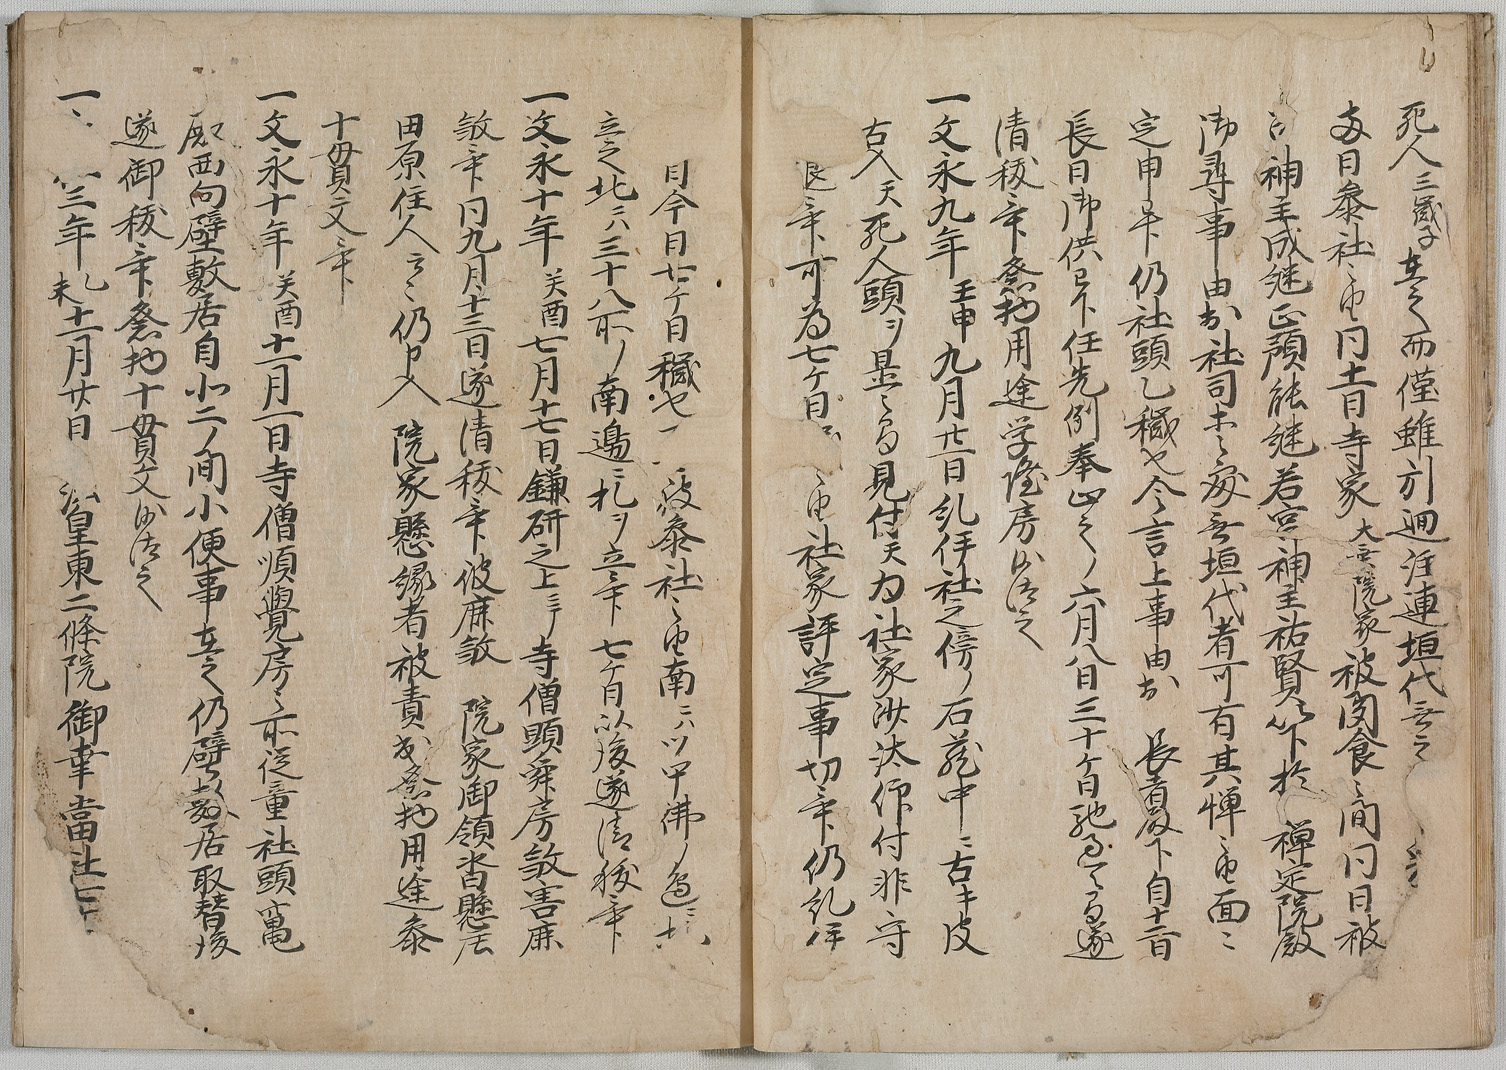 死人三歳子在之而僅雖引廻注連垣代無之
毎日参社之由同十一日寺家大乗院家被聞食之間同日被
神主成継正預能継若宮神主祐賢以下於禅定院殿
御尋事由於社司等之処無垣代者可有其憚之由面々
定申畢仍社頭乙穢也今言上事由於長者殿下自十一日
長日御供已下任先例奉止之了六月八日三十ケ日馳過了而遂
清祓畢祭物用途学隆房沙汰之
一文永九年壬申九月廿一日紀伊社之傍ノ石蔵中ニ古キ皮
古入天死人頭ヲ置之而見付天為社家沙汰仰付非守
退畢可為七ケ日之由社家評定事切畢仍紀伊
日今日廿ケ日穢也一被参社之由南ニハツ甲佛ノ辺ニ
立之北ハ三十八所ノ南邊ニ札ヲ立畢七ケ日以後遂清祓畢
一文永十年癸酉七月十七日鎌研之上ニテ寺僧頭舜房敜害鹿
敜畢同九月十三日遂清祓畢彼鹿敜院家御領沓懸庄
田原住人云々仍申入院家懸縁者被責出祭物用途参
十貫文畢
一文永十年癸酉十一月一日寺僧順覺房之所従童社頭竃
殿西向壁敷居自北二ノ間小便事在之仍壁敷居取替後
遂御祓畢祭物十貫文沙汰之
一三年乙未十一月廿日法皇東二條院御幸當社七